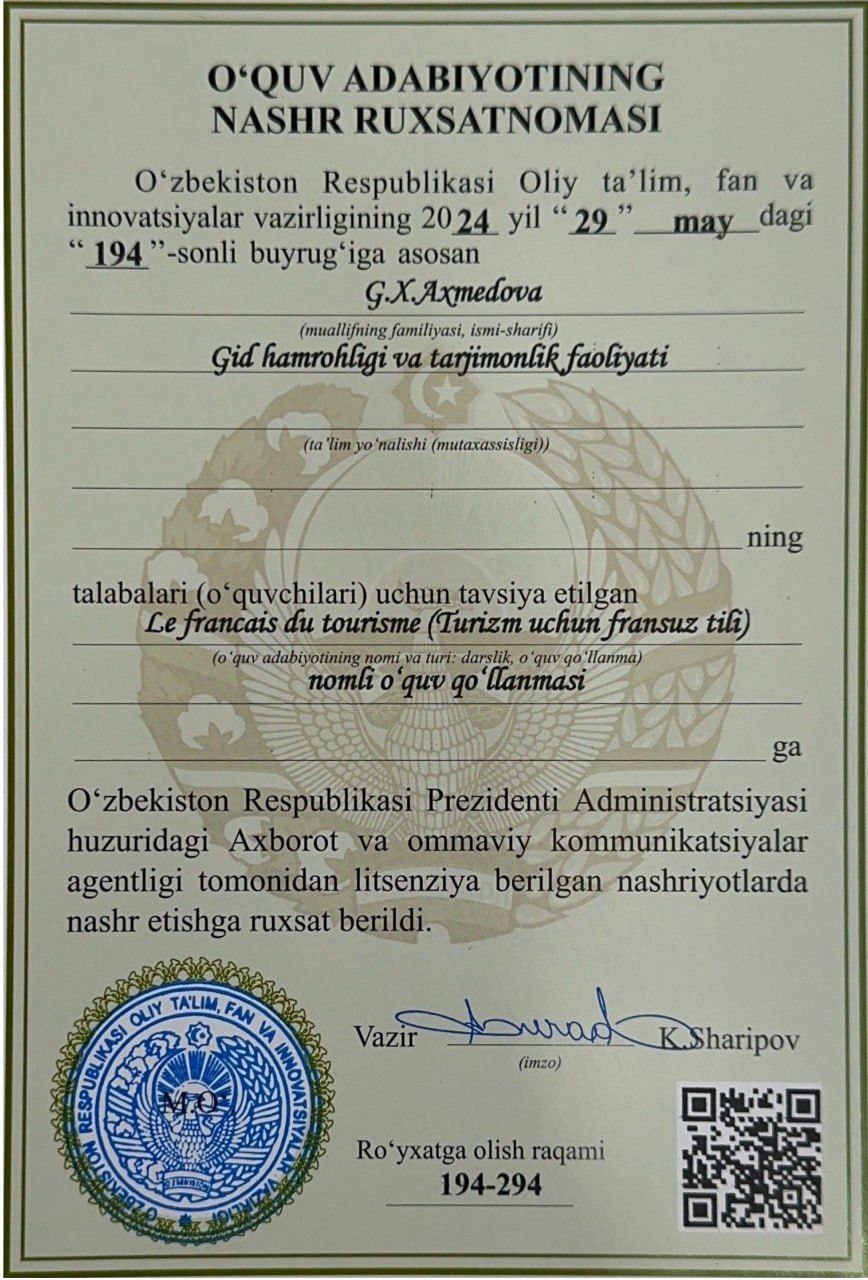 O‘QUV ADABIYOTINING
NASHR RUXSATNOMASI
O‘zbekiston Respublikasi Oliy ta’lim, fan va
innovatsiyalar vazirligining 2024 yil “29” may dagi
“194”-sonli buyrug‘iga asosan
G.X.Axmedova
(muallifning familiyasi, ismi-sharifi)
Gid hamrohligi va tarjimonlik faoliyati
(ta’lim yo‘nalishi (mutaxassisligi))
ning
talabalari (o‘quvchilari) uchun tavsiya etilgan
Le francais du tourisme (Turizm uchun fransuz tili)
(o‘quv adabiyotining nomi va turi: darslik, o‘quv qo‘llanma)
nomli o‘quv qo‘llanmasi
ga
O‘zbekiston Respublikasi Prezidenti Administratsiyasi
huzuridagi Axborot va ommaviy kommunikatsiyalar
agentligi tomonidan litsenziya berilgan nashriyotlarda
nashr etishga ruxsat berildi.
Vazir K.Sharipov
(imzo)
O‘ZBEKISTON RESPUBLIKASI OLIY TA’LIM, FAN VA INNOVATSIYALAR VAZIRLIGI
M.O‘
O‘ZBEKISTON
Ro‘yxatga olish raqami
194-294